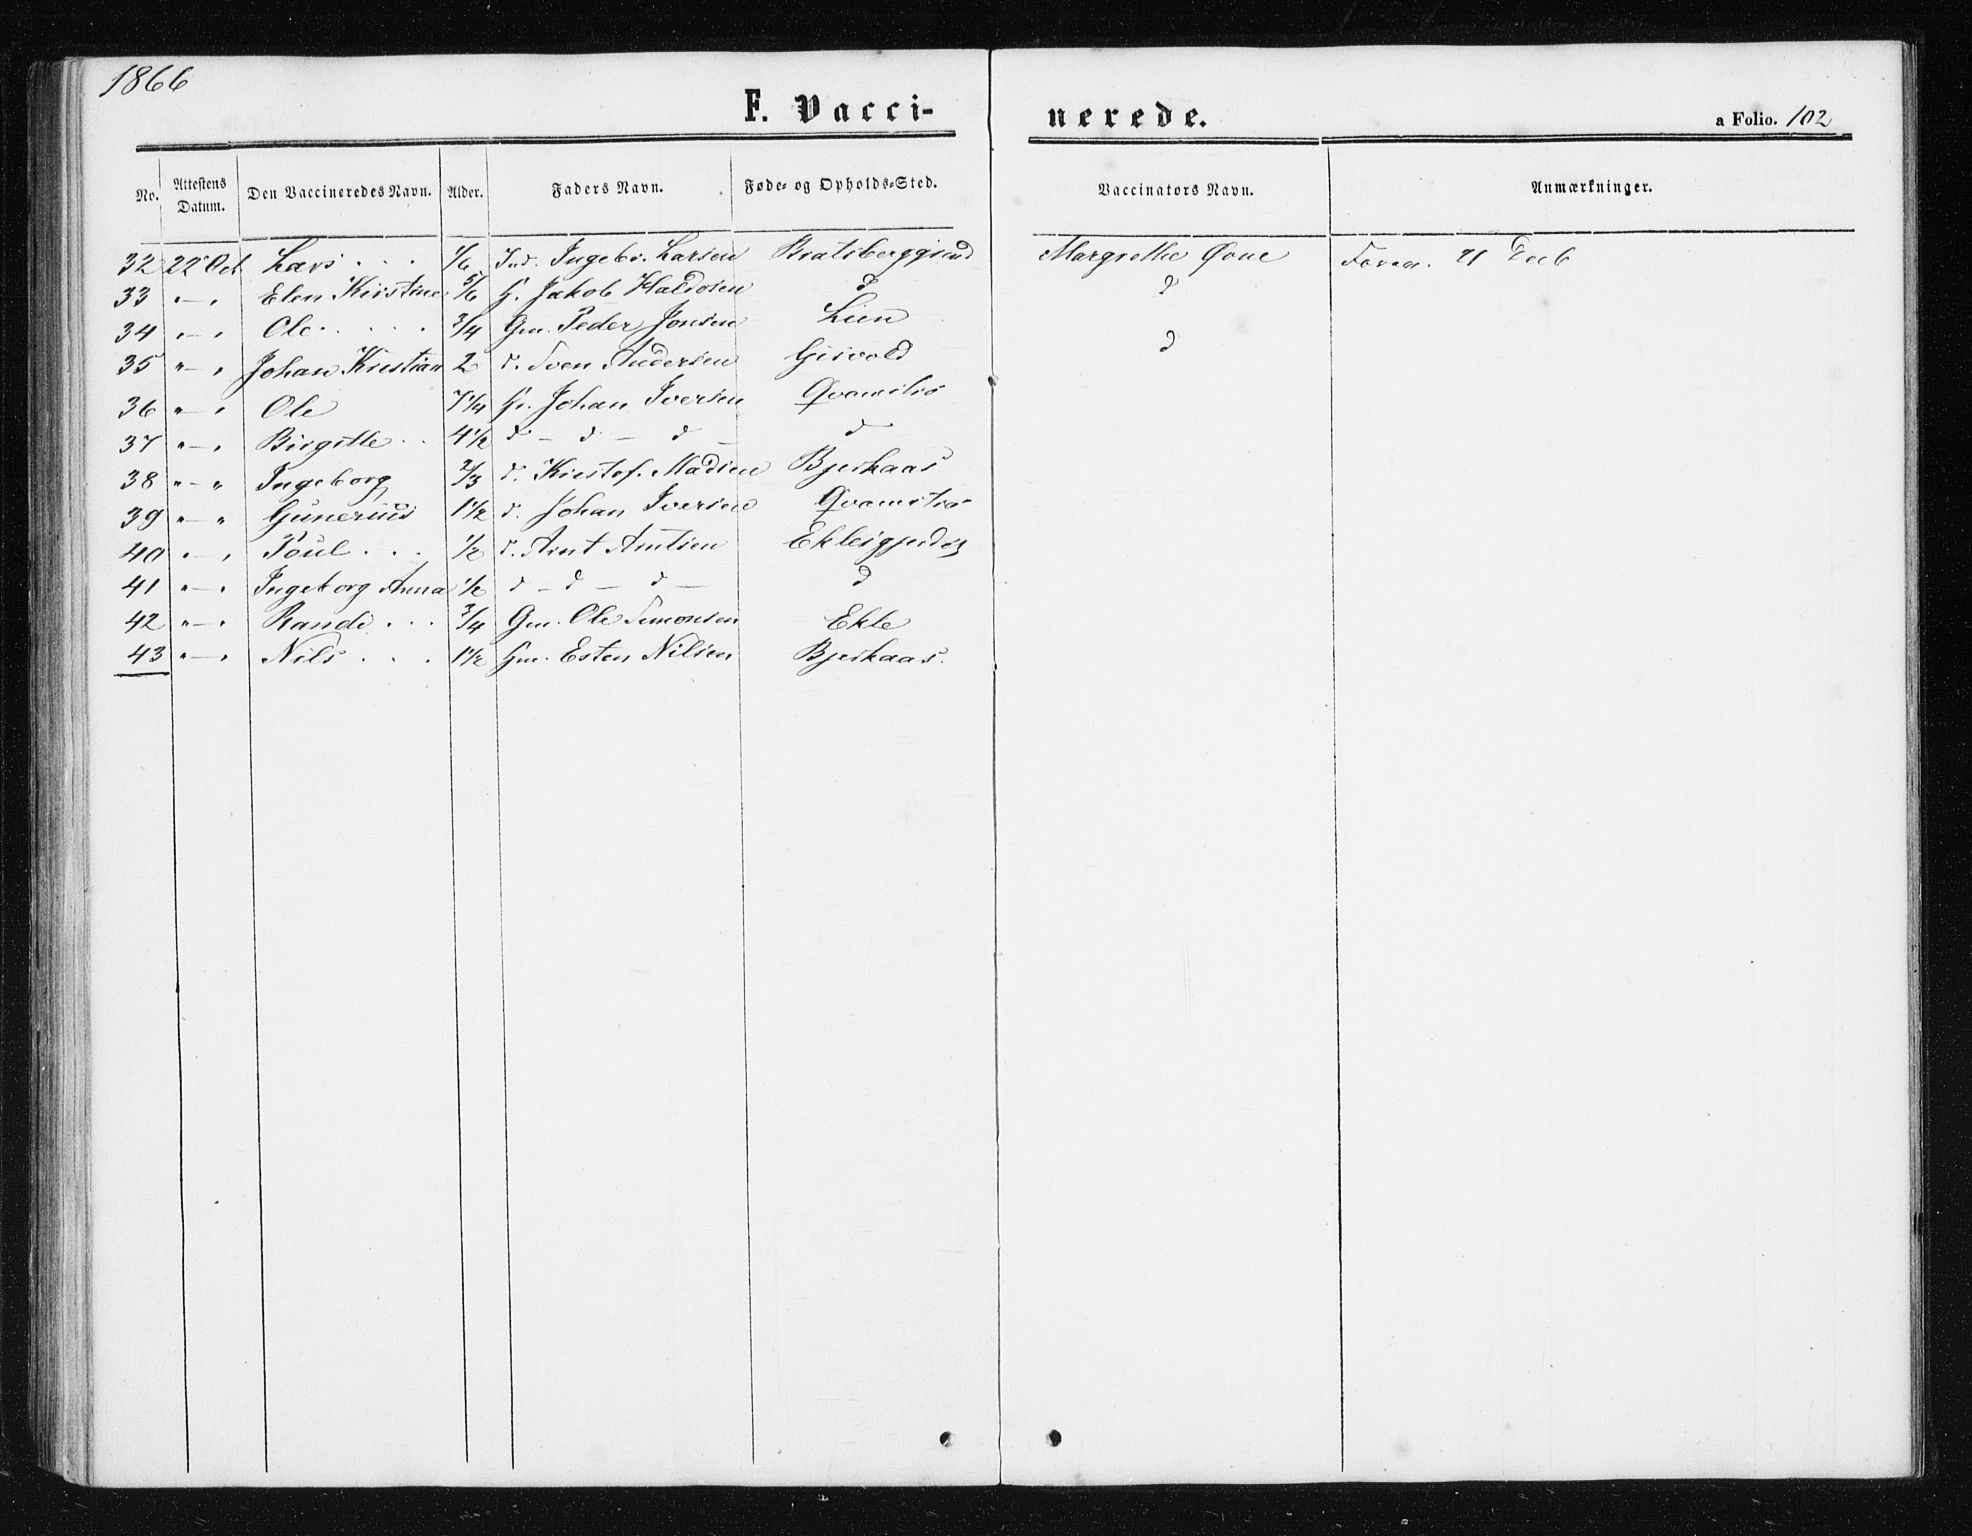 1866
F. Vacci-
nerede.
a Folio. 102
No. Attestens Datum. Den Vaccineredes Navn. Alder. Faders Navn. Føde- og Opholds-Sted. Vaccinators Navn. Anmærkninger.
32 22 Oct Lars . . . 1/6 Ind. Ingebr. Larsen Bratsberggrind Margrethe Øvne 21 Decb
33 " — " Elen Kirstine 5/6 G. Jakob Haldosen d d
34 " — " Ole . . . . . 3/4 Gm. Peder Jonsen Lien d
35 " — " Johan Kristian 2 d. Sven Andersen Gisvold
36 " — " Ole 7 1/4 Johan Iversen Qvamslio
37 " — " Birgitte . . 4 1/2 d — d — d — d
38 " — " Ingeborg 2/3 d. Kristof. Madsen Bjerkaas
39 " — " Gunerius 1 1/2 d. Johan Iversen Qvamslio
40 " — " Poul . . . 1/2 d. Arnt Arntsen Eklesgjerdet
41 " — " Ingeborg Anna 1/2 d — d — d — d
42 " — " Randi . . . 3/4 Gm. Ole Simonsen Ekle
43 " — " Nils . . . 1 1/2 Gm. Esten Nilsen Bjerkaas.